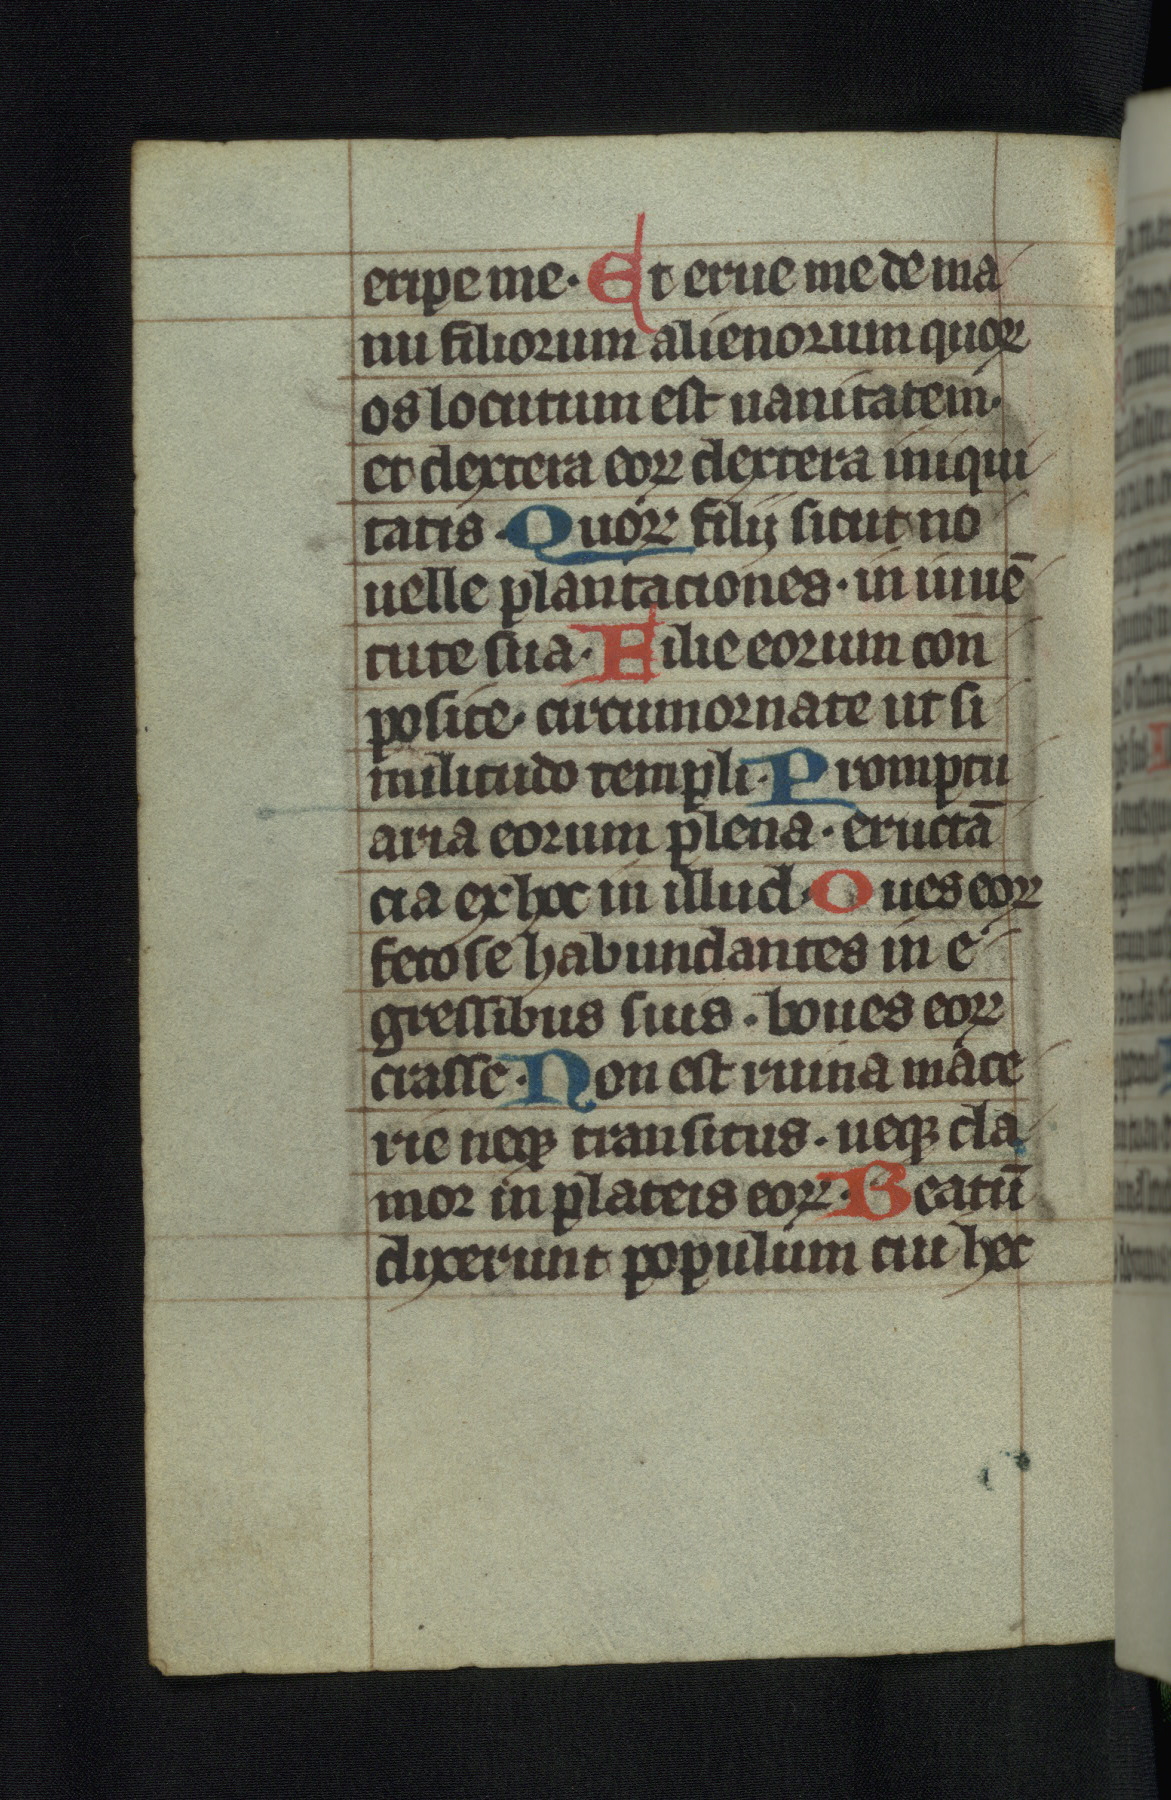 eripe me · Et erue me de ma
nu filiorum alienorum quoꝝ
os locutum est uanitatem ·
et dextera eoꝝ dextera iniqui
tatis · Quoꝝ filij sicut no
uelle plantaciones · in iuuē
tute sua · Filie eorum con
posite · circumornate ut si
militudo templi · Promptu
aria eorum plena · eructā
cia ex hoc in illud · Oues eoꝝ
fetose habundantes in e
gressibus suis · boues eoꝝ
crasse · Non est ruina mace
rie neqꝫ transitus · neqꝫ cla
mor in plateis eoꝝ · Beatū
dixerunt populum cui hec